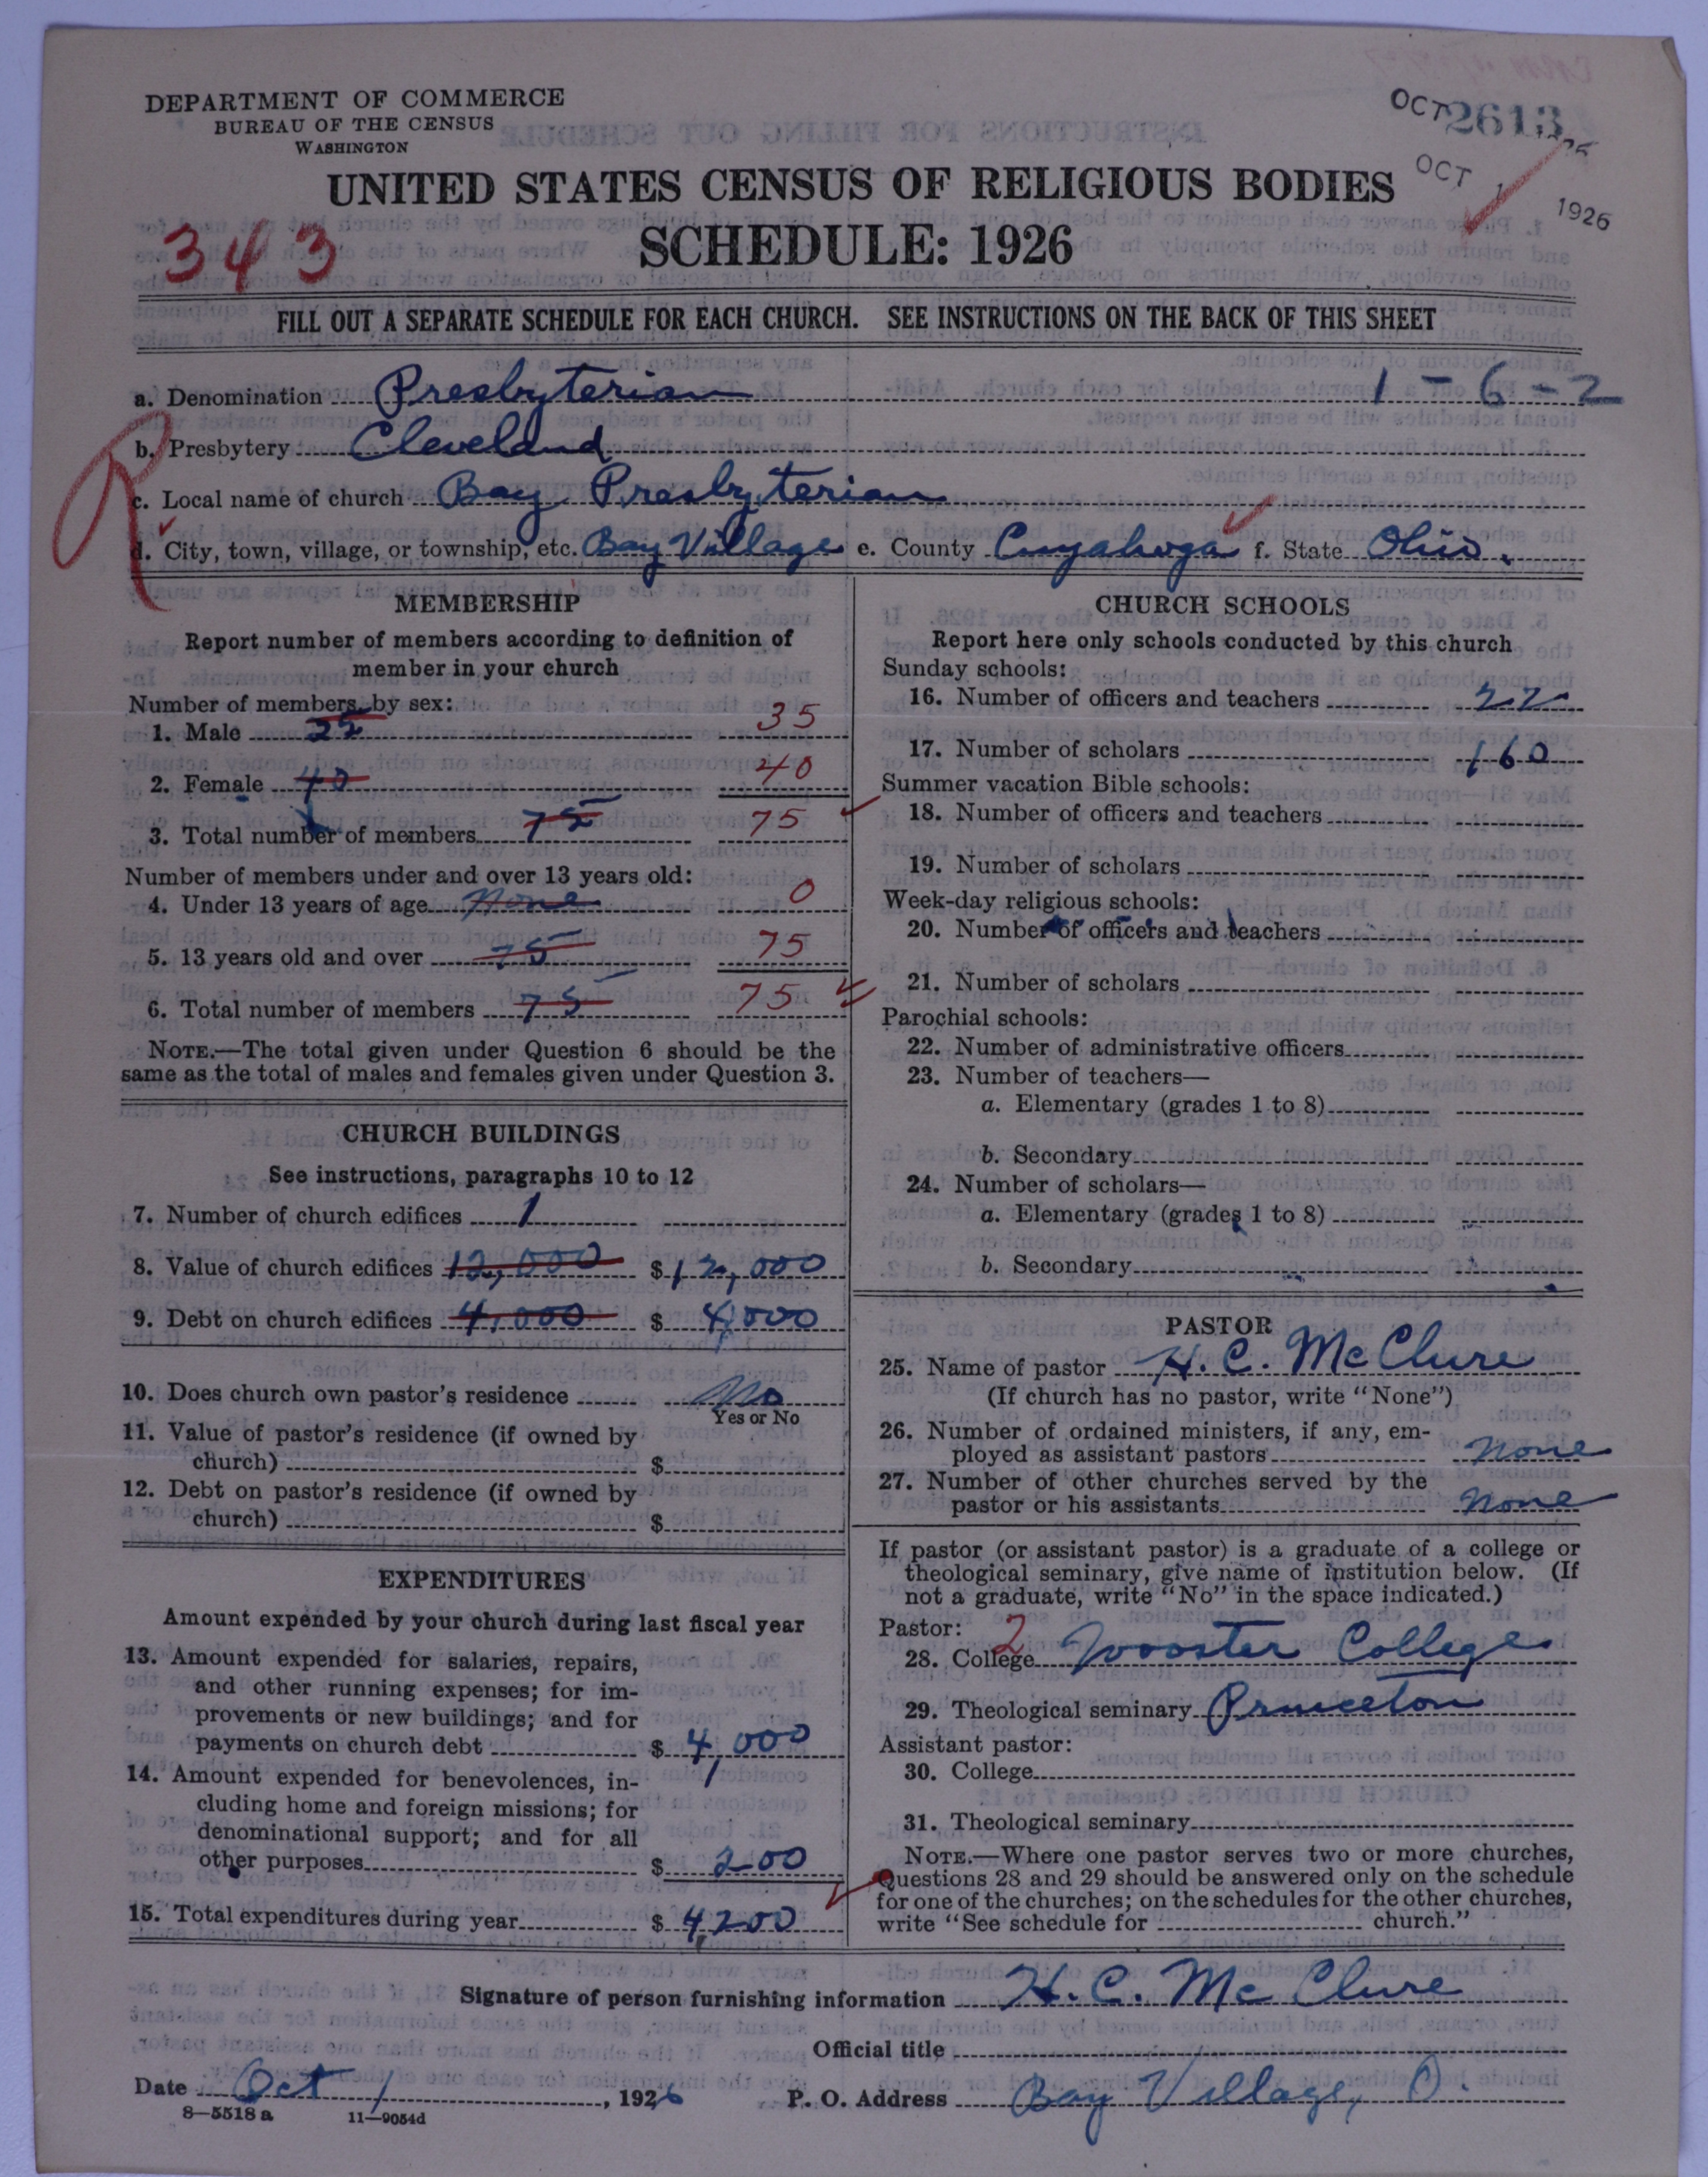 DEPARTMENT OF COMMERCE
BUREAU OF THE CENSUS
WASHINGTON
OCT 2613
OCT 1 1926
UNITED STATES CENSUS OF RELIGIOUS BODIES
SCHEDULE: 1926
343
FILL OUT A SEPARATE SCHEDULE FOR EACH CHURCH. SEE INSTRUCTIONS ON THE BACK OF THIS SHEET
a. Denomination Presbyterian 1-6-2
b. Presbytery Cleveland
c. Local name of church Bay Presbyterian
d. City, town, village, or township, etc. Bay Village e. County Cuyahoga f. State Ohio.
R
MEMBERSHIP
Report number of members according to definition of
member in your church
Number of members by sex:
1. Male 35 35
2. Female 40 40
3. Total number of members 75 75
Number of members under and over 13 years old:
4. Under 13 years of age None 0
5. 13 years old and over 75 75
6. Total number of members 75 75
NOTE.—The total given under Question 6 should be the
same as the total of males and females given under Question 3.
CHURCH BUILDINGS
See instructions, paragraphs 10 to 12
7. Number of church edifices 1
8. Value of church edifices 12,000 $12,000
9. Debt on church edifices 4,000 $ 4,000
10. Does church own pastor's residence No
Yes or No
11. Value of pastor's residence (if owned by
church) $
12. Debt on pastor's residence (if owned by
church) $
EXPENDITURES
Amount expended by your church during last fiscal year
13. Amount expended for salaries, repairs,
and other running expenses; for im-
provements or new buildings; and for
payments on church debt $ 4,000
14. Amount expended for benevolences, in-
cluding home and foreign missions; for
denominational support; and for all
other purposes $ 200
15. Total expenditures during year $ 4,200
CHURCH SCHOOLS
Report here only schools conducted by this church
Sunday schools:
16. Number of officers and teachers 22
17. Number of scholars 160
Summer vacation Bible schools:
18. Number of officers and teachers
19. Number of scholars
Week-day religious schools:
20. Number of officers and teachers
21. Number of scholars
Parochial schools:
22. Number of administrative officers
23. Number of teachers—
a. Elementary (grades 1 to 8)
b. Secondary
24. Number of scholars—
a. Elementary (grades 1 to 8)
b. Secondary
PASTOR
25. Name of pastor H. C. McClure
(If church has no pastor, write "None")
26. Number of ordained ministers, if any, em-
ployed as assistant pastors None
27. Number of other churches served by the
pastor or his assistants None
If pastor (or assistant pastor) is a graduate of a college or
theological seminary, give name of institution below. (If
not a graduate, write "No" in the space indicated.)
Pastor: 2
28. College Wooster College
29. Theological seminary Princeton
Assistant pastor:
30. College
31. Theological seminary
NOTE.—Where one pastor serves two or more churches,
Questions 28 and 29 should be answered only on the schedule
for one of the churches; on the schedules for the other churches,
write "See schedule for church."
Signature of person furnishing information H. C. McClure
Official title
Date Oct 1, 1926 P. O. Address Bay Village, O.
8—5518 a 11—9054d